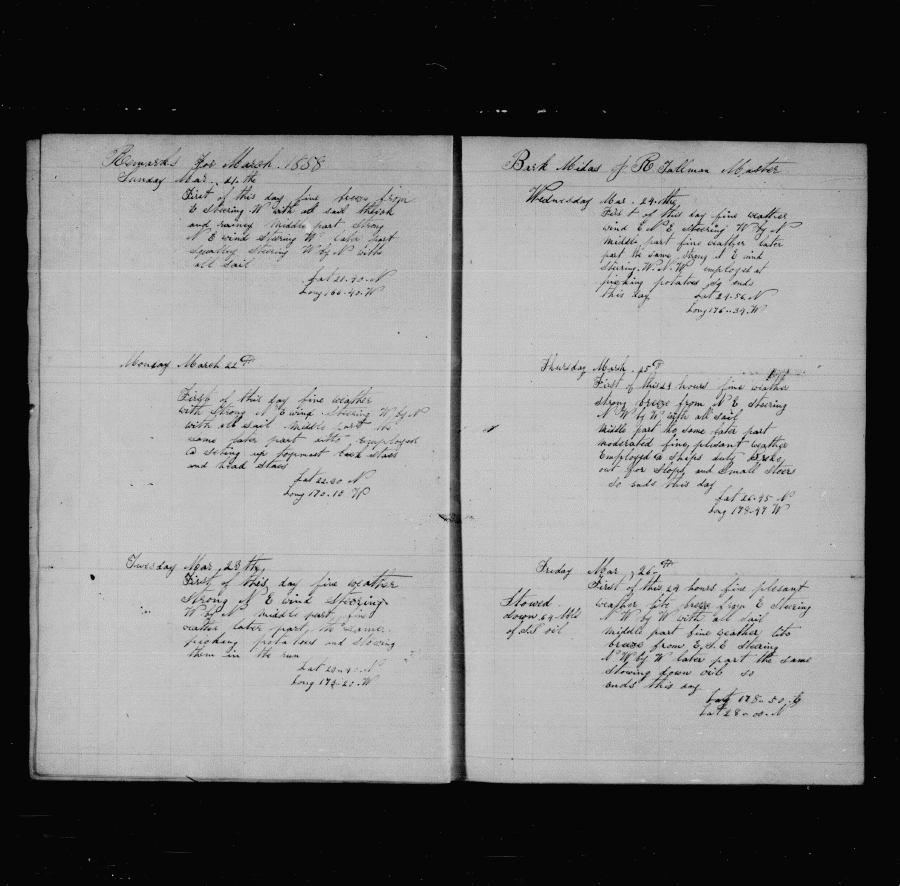 Remarks for March 1858
Sunday Mar. 21. th
First of this day fine breeze from
E Steering W with all sail
and rainey middle part Strong
N E wind Steering W later part
Squalley Steering W by N with
all sail
Lat 21-40 N
Long 166-40 W
Monday March 22th
First of this day fine weather
with Strong N E wind Steering W by N
with all sail middle part the
same later part Employed
a seting up formost back stais
and head stais
Lat 22.30 N
Long 170-10 W
Tuesday Mar. 23 th
First of this day fine weather
Strong N E wind Steering
W by N middle part fine
weather later part the same
picking potatoes and stowing
them in the run
Lat 23-40 N
Long 173-20 W
Bark Midas of R Tallman Master
Wednesday Mar. 24. th
First of this day fine weather
wind E N E Steering W by N
middle part fine weather later
part the same strong N E wind
Steering W. N. W employed at
picking potatoes so ends
this day
Lat 24-56 N
Long 176-34 W
Thursday March 25 th
First of this 24 hours fine weather
strong breeze from N E Steering
N W by W with all sail
middle part the same later part
moderated fine plesant weather
Employed a ships duty Broke
out for Slops and Small Stoers
so ends this day
Lat 26-45 N
Long 178-47 W
Friday Mar. 26 th
Stowed
down 64 bbls
of oil
First of this 24 hours fine plesant
weather lite breeze from E Steering
N W by W with all sail
middle part fine weather lite
breeze from E. S. E Steering
N W by W later part the same
Stowing down oil so
ends this day
Long 178-50 E
Lat 28-00 N